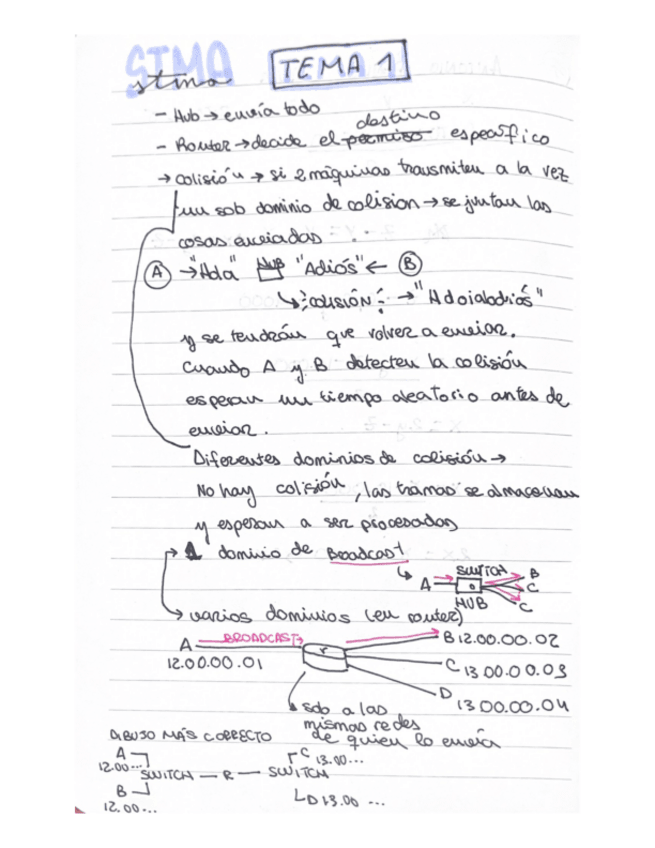 STMA
stma TEMA 1
- Hub → envía todo
destino
- Router → decide el permiso específico
→ colisión → si 2 máquinas transmiten a la vez
un sob dominio de colision → se juntan las
cosas enviadas
A → "Hola" HUB "Adiós" ← B
↳ ¡colisión! → "Adoialodiós"
y se tendrán que volver a enviar.
Cuando A y B detecten la colisión
esperan un tiempo aleatorio antes de
enviar.
Diferentes dominios de colisión →
No hay colisión, las tramas se almacenan
y esperan a ser procesadas
→ 1 dominio de Broadcast
↳ A SWITCH B
C
HUB C
↳ varios dominios (en router)
A BROADCAST r B 12.00.00.02
12.00.00.01 C 13.00.00.03
D 13.00.00.04
↳ sob a las
mismas redes
de quien lo envía
DIBUJO MÁS CORRECTO
A C 13.00...
12.00...
SWITCH — R — SWITCH
B D 13.00 ...
12.00...